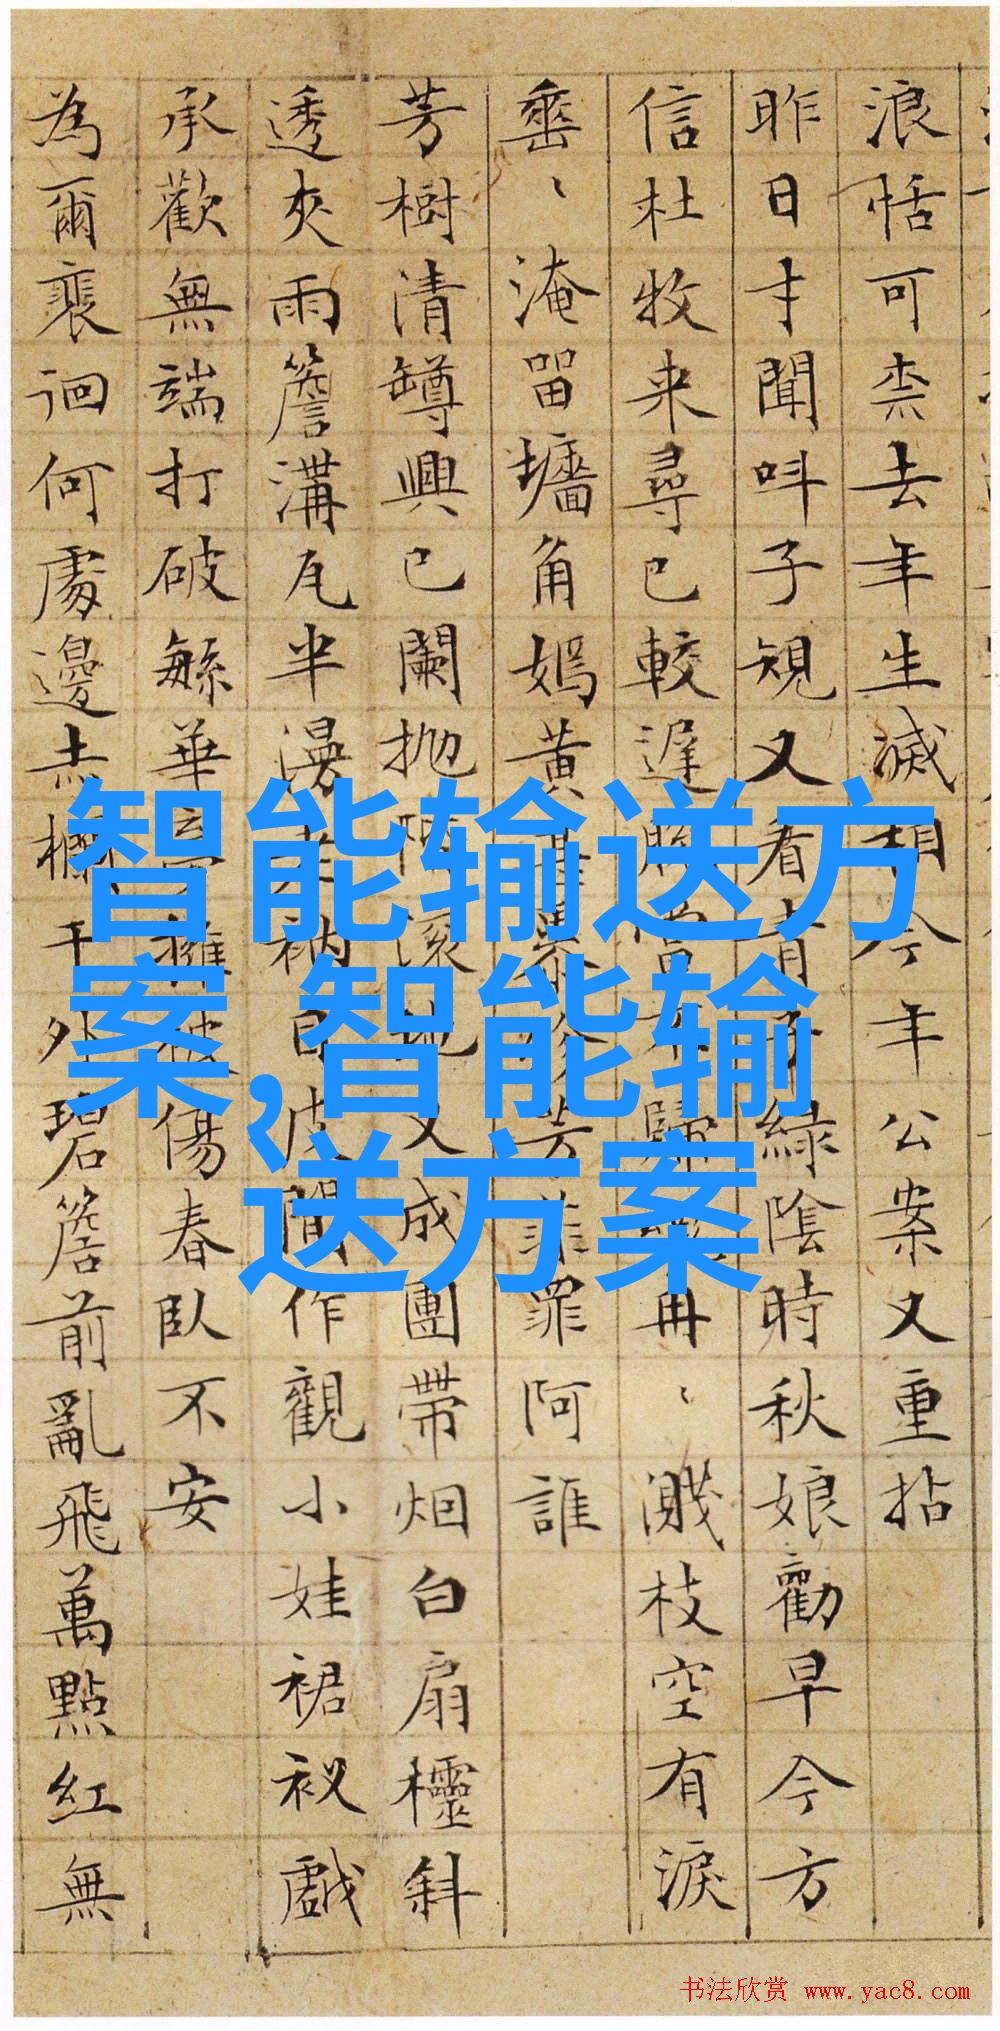 浪恬可柰去年生滅相今年公案又重拈
昨日才聞呌子規又看青子綠陰時秋娘勸早今方
信杜牧来尋已較遲
再、濺枝空有淚
垂、淹留墻角嫣黄
芳菲罪阿誰
芳樹清罇興已闌抛
滚地又成團帶烟白扇欞斜
透夾雨簷溝瓦半漫
作觀小娃裙衩戲
承歡無端打破緜華
擁被傷春臥不安
為爾裵徊何處邊赤欄干外碧簷前亂飛萬點紅無
智能输送方
案,智能输
送方案
书法欣赏 www.yac8.com